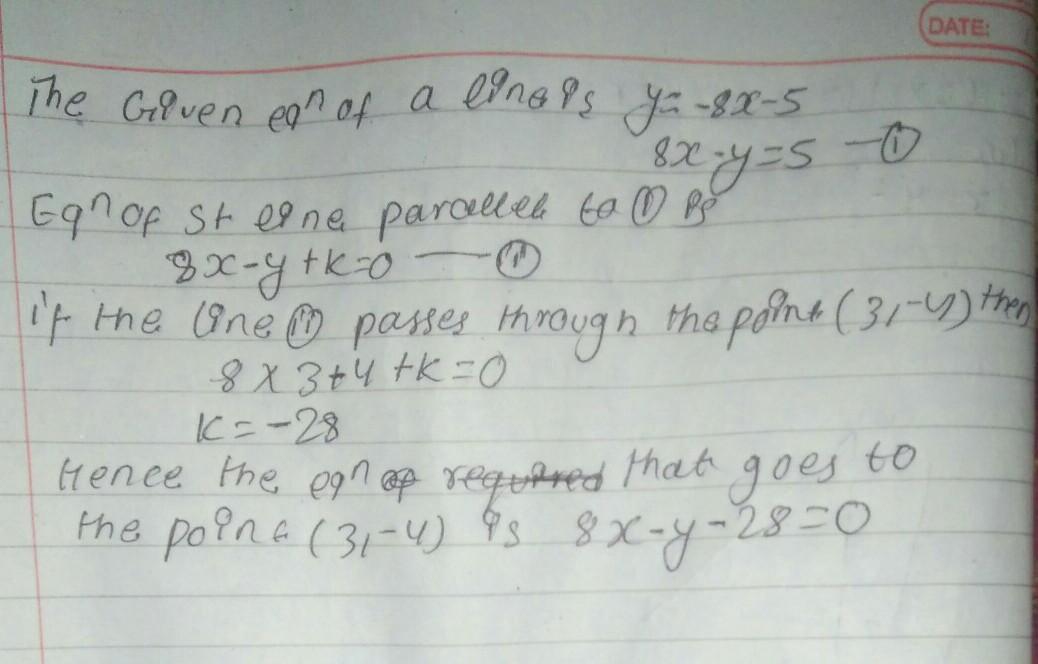 DATE:
The Given eqn of a line is y=-8x-5
8x-y=5 —①
Eqn of St line parallel to ① is
8x-y+k=0 —⑪
if the line ⑪ passes through the point (3,-4) then
8×3+4+k=0
k=-28
Hence the eqn of required that goes to
the point (3,-4) is 8x-y-28=0